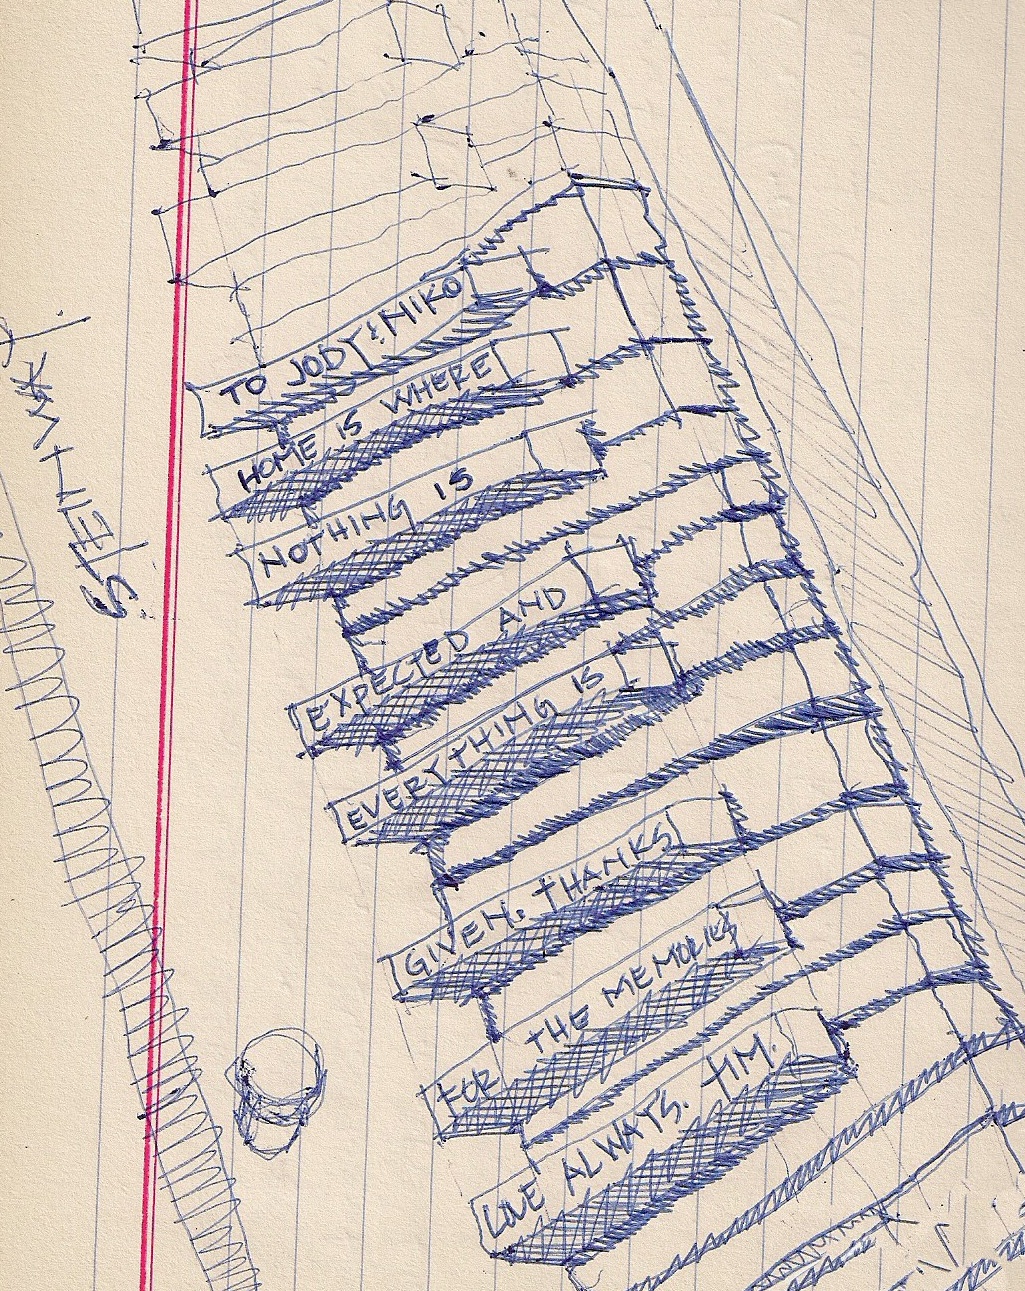 TO JODY & NIKO
HOME IS WHERE
NOTHING IS
EXPECTED AND
EVERYTHING IS
GIVEN. THANKS
FOR THE MEMORIES
LOVE ALWAYS. TIM.